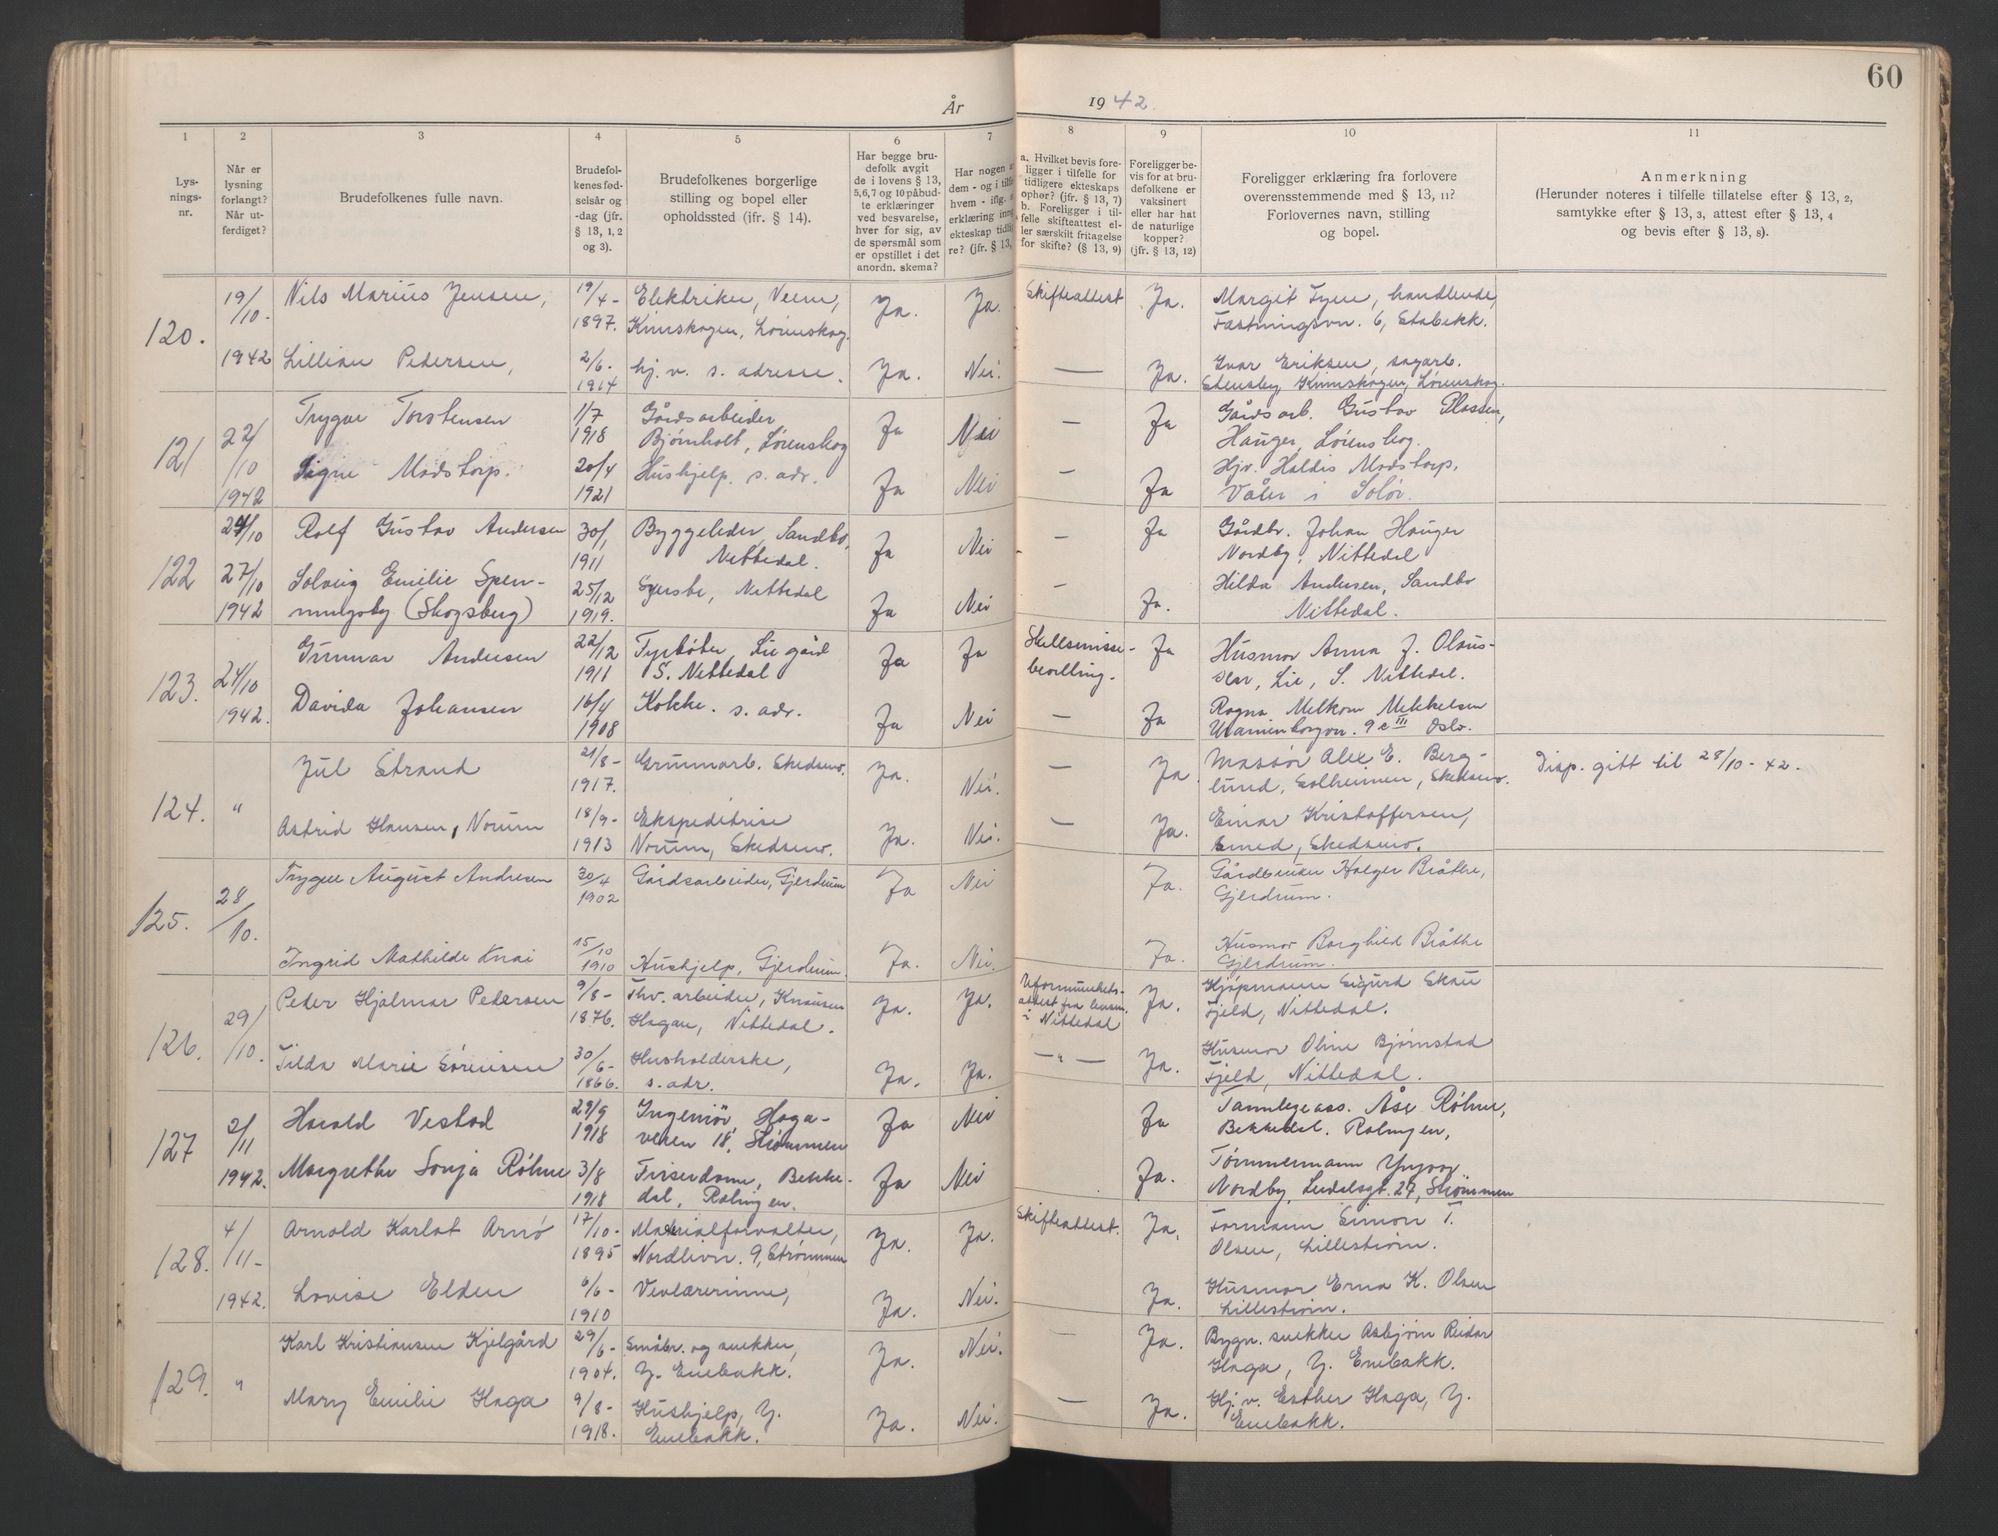 60
År 1942.
1 2 3 4 5 6 7 8 9 10 11
Lys-
nings-
nr.
Når er
lysning
forlangt?
Når ut-
ferdiget?
Brudefolkenes fulle navn.
Brudefol-
kenes fød-
selsår og
-dag (jfr.
§ 13, 1, 2
og 3).
Brudefolkenes borgerlige
stilling og bopel eller
opholdssted (jfr. § 14).
Har begge bru-
defolk avgit
de i lovens § 13,
5,6,7 og 10 påbud-
te erklæringer
ved besvarelse,
hver for sig, av
de spørsmål som
er opstillet i det
anordn. skema?
Har nogen a
dem - og i tilfe
hvem - iflg.
erklæring inng
ekteskap tidlig
re? (jfr. § 13,
a. Hvilket bevis fore-
ligger i tilfelle for
tidligere ekteskaps
ophør? (§ 13, 7)
b. Foreligger i til-
felle skifteattest el-
ler særskilt fritagelse
for skifte? (§ 13, 9)
Foreligger be-
vis for at bru-
defolkene er
vaksinert
eller har hat
de naturlige
kopper?
(jfr. § 13, 12)
Foreligger erklæring fra forlovere
overensstemmende med § 13, 11?
Forlovernes navn, stilling
og bopel.
Anmerkning
(Herunder noteres i tilfelle tillatelse efter § 13, 2,
samtykke efter § 13, 3, attest efter § 13, 4
og bevis efter § 13, 8).
120. 19/10. 1942 Nils Marius Jensen, 19/4- 1897. Elektriker, Veem, Ja. Ja. Skifteattest Ja. Margit Tyen, handlende,
Kinnskogen, Lørenskog. 6, Stabekk.
Lillian Pedersen, 2/6- 1914 hj. v. s. adresse. Ja. Nei. — Ja. Ivar Eriksen, sagarb.
Stensby, Kinnskogen, Lørenskog.
121 22/10 1942 Trygve Torstensen 1/7 1918 Gårdsarbeider Ja Nei — Ja Gårdsarb. Gustav Plassen,
Bjørnholt, Lørenskog Hauger, Lørenskog.
Signe Modstorp. 20/4 1921 Hushjelp. s. adr. Ja Nei — Ja Hjv. Haldis Modstorp,
Våler i Solør.
122 24/10 27/10 1942 Rolf Gustav Andersen 30/1 1911 Byggeleder, Sandbo, Ja Nei — Ja Gårdbr. Johan Hauger
Nittedal. Nordby, Nittedal
Solveig Emilie Spen- 25/12 1919. Nittedal Ja Nei — Ja. Hilda Andersen, Sandbo
ningsby (Skogsberg) Nittedal.
123. 24/10 1942. Gunnar Andersen 22/12 1911 Fyrbøter, Lie gård Ja Ja Skilsmisse- Ja Husmor Anna J. Olaus-
S. Nittedal bevilling. Lie, S. Nittedal.
Davida Johansen 16/4 1908 Kokke. s. adr. Ja Nei — Ja Ragna Melkom Mikkelsen
9 c III Oslo.
124. " Jul Strand 21/8- 1917. Grunnarb. Skedsmo. Ja. Nei. — Ja. Massør Alex. E. Berg- Disp. gitt til 28/10-42.
lund, Solheimen, Skedsmo.
Astrid Hansen, Norum 18/9- 1913 Ekspeditrise Ja. Nei. — Ja. Einar Kristoffersen,
Norum, Skedsmo. smed, Skedsmo.
125. 28/10. Trygve August Andresen 30/4 1902 Gårdsarbeider, Gjerdrum Ja Nei Ja. Gårdbruker Holger Bråthe,
Gjerdrum.
Ingrid Mathilde Knai 15/10 1910 Hushjelp, Gjerdrum. Ja. Nei. Ja. Husmor Borghild Bråthe
Gjerdrum.
126. 29/10. Peder Hjalmar Pedersen 9/8- 1876. Thv. arbeider, Knausen Ja. Ja. Uformuenhets- Ja. Kjøpmann Sigurd Skau
Hagan, Nittedal. attest fra lensm. Fjeld, Nittedal.
i Nittedal
Tilda Marie Sørensen 30/6- 1866. Husholderske, Ja. Ja. —"— Ja. Husmor Oline Bjørnstad
s. adr. Fjeld, Nittedal.
127 2/11 1942. Harald Vestad 29/9 1918 Ingeniør, Haga- Ja Nei Ja Tannlegeass. Åse Røhne,
veien 18, Strømmen Bekkedal. Rælingen,
Margrethe Sonja Røhne 3/8 1918 Friserdame, Bekke- Ja Nei Ja. Tømmermann Yngvar
dal, Rælingen. Nordby, Ludalsgt. 27, Strømmen
128. 4/11- 1942. Arnold Karlot Arnø 17/10- 1895 Materialforvalter, Ja. Ja. Skifteattest. Ja. Formann Simon T.
Nordlivn. 9, Strømmen Olsen, Lillestrøm.
Lovise Elden 6/6- 1910 Vevlærerinne, Ja. Nei. Ja. Husmor Erna K. Olsen
Lillestrøm.
129. " Karl Kristiansen Kjelgård 29/6- 1904. Småbr. og snekker, Ja. Nei. — Ja. Bygn. snekker Asbjørn Reidar
Y. Enebakk. Haga, Y. Enebakk.
Mary Emilie Haga 9/8- 1918. Hushjelp, Y. Ja. Nei. — Ja. Hj. v. Esther Haga, Y.
Enebakk. Enebakk.